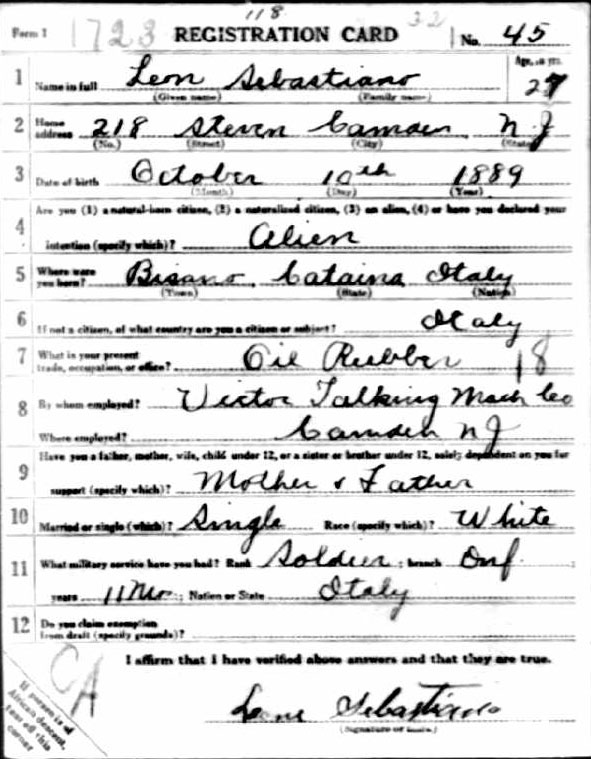 118
Form 1 1723 REGISTRATION CARD 32 No. 45
1 Name in full Leon Sebastiano Age, in yrs. 27
(Given name) (Family name)
2 Home address 218 Steven Camden N J
(No.) (Street) (City) (State)
3 Date of birth October 10th 1889
(Month) (Day) (Year)
4 Are you (1) a natural-born citizen, (2) a naturalized citizen, (3) an alien, (4) or have you declared your
intention (specify which)? Alien
5 Where were you born? Bisano Cataina Italy
(Town) (State) (Nation)
6 If not a citizen, of what country are you a citizen or subject? Italy
7 What is your present trade, occupation, or office? Oil Rubber 18
8 By whom employed? Victor Talking Mach Co
Where employed? Camden N J
9 Have you a father, mother, wife, child under 12, or a sister or brother under 12, solely dependent on you for
support (specify which)? Mother & Father
10 Married or single (which)? Single Race (specify which)? White
11 What military service have you had? Rank Soldier ; branch Inf. ;
years 11 Mo ; Nation or State Italy
12 Do you claim exemption from draft (specify grounds)?
I affirm that I have verified above answers and that they are true.
CA
If person is of African descent, tear off this corner
Leone Sebastiano
(Signature or mark)